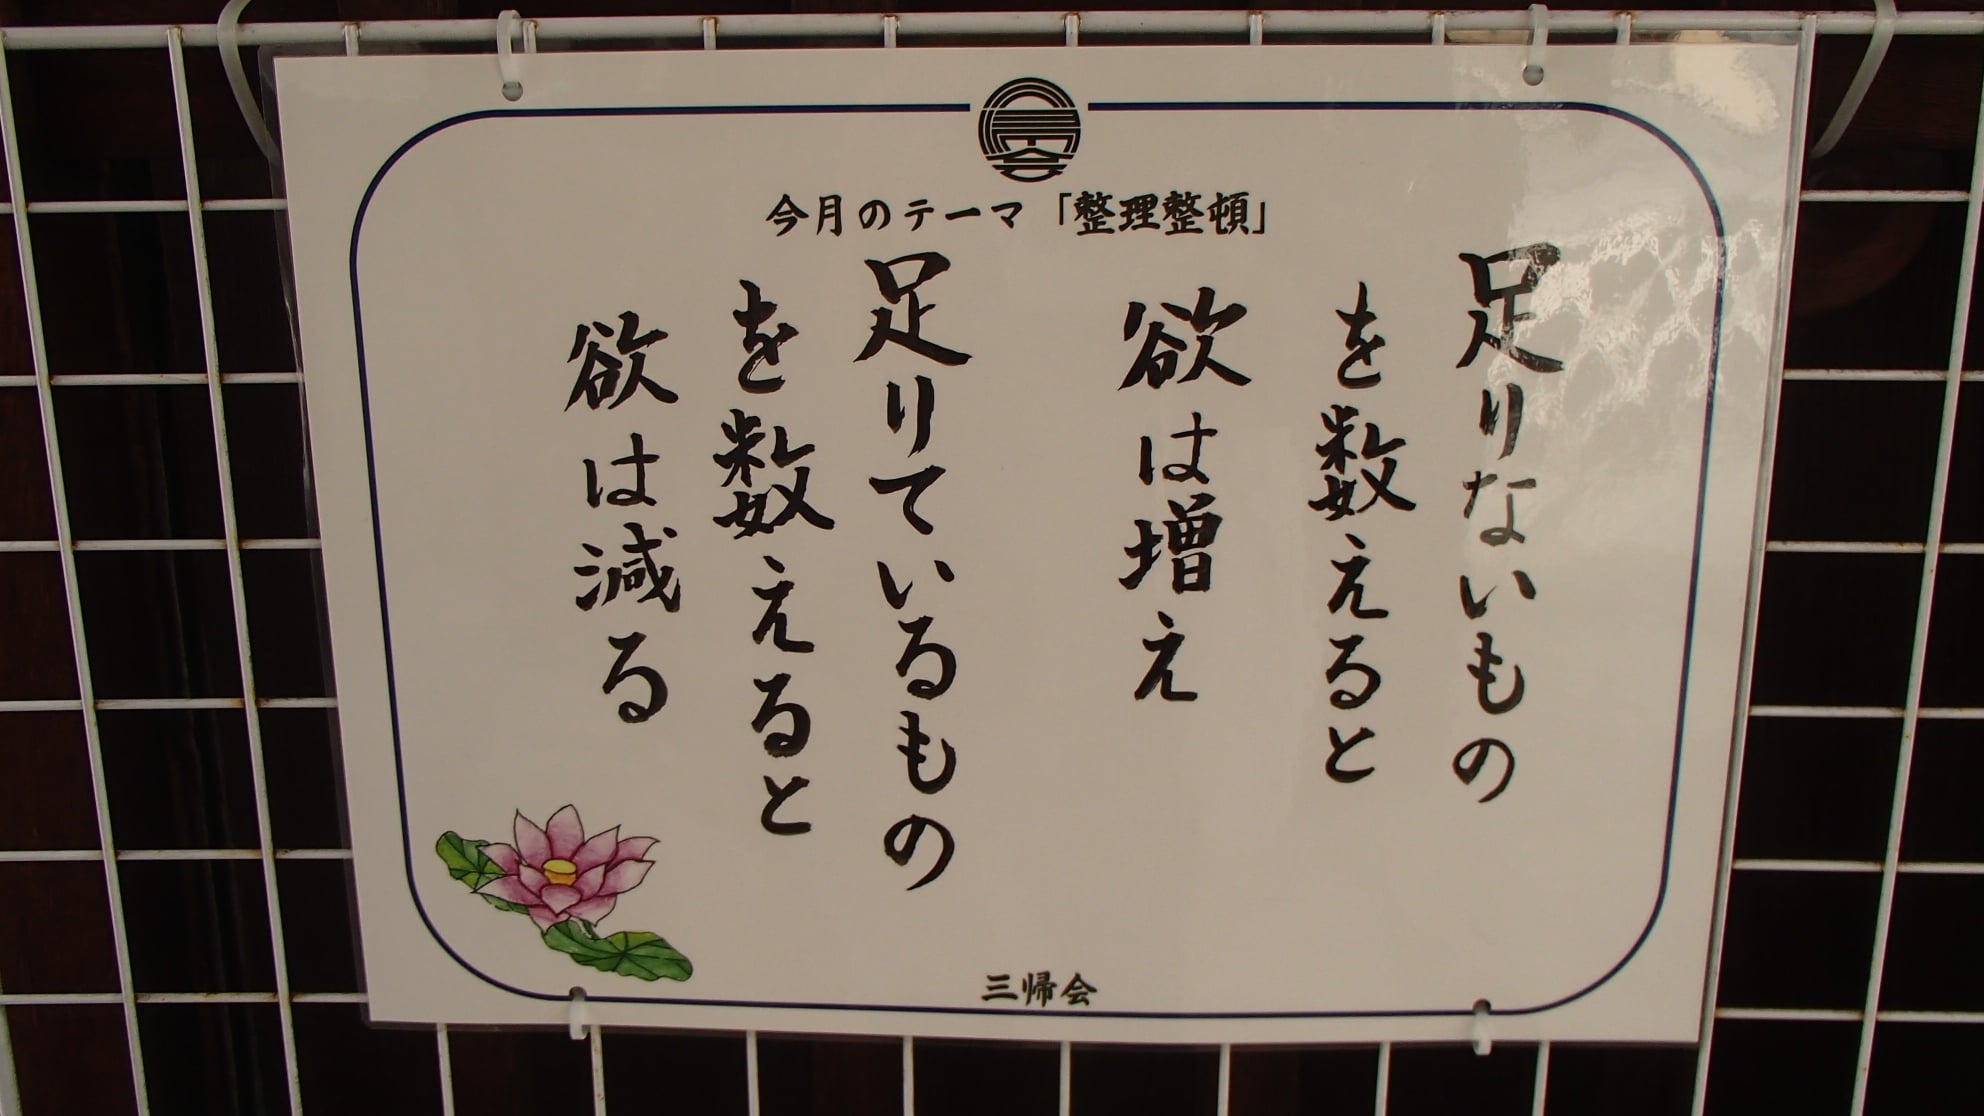 今月のテーマ「整理整頓」
足りないもの
を数えると
欲は増え
足りているもの
を数えると
欲は減る
三帰会